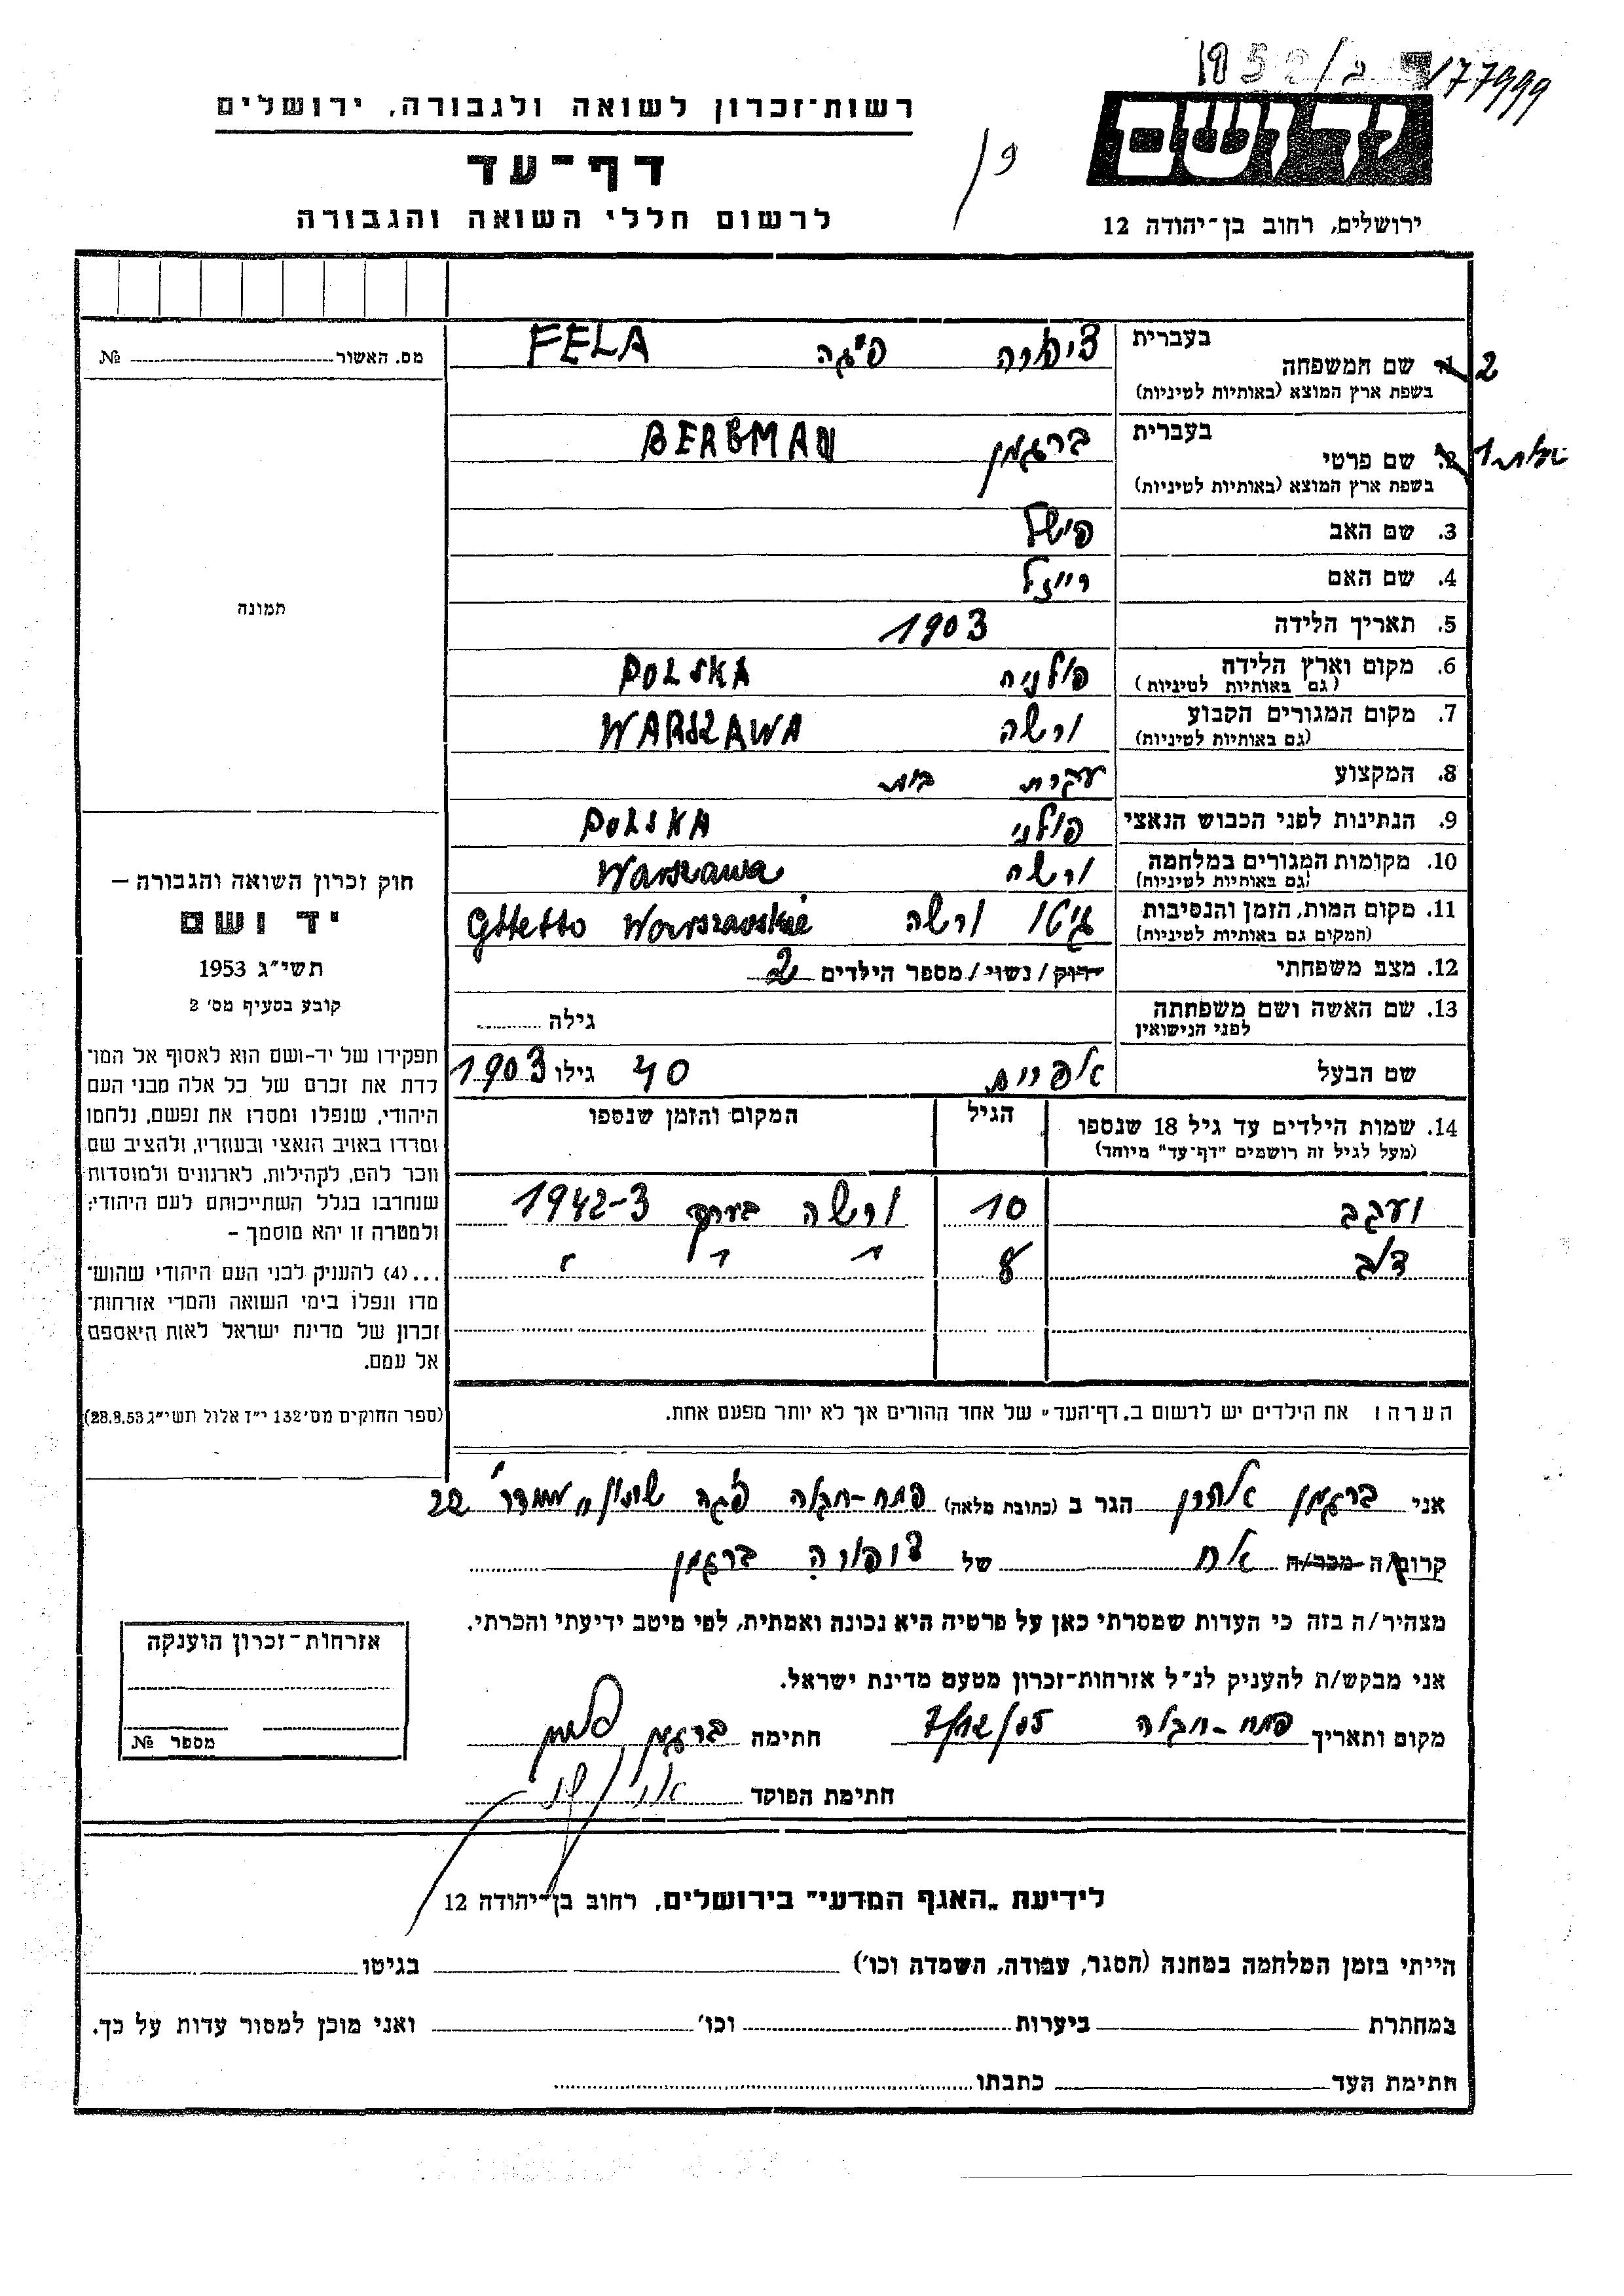 177999
רשות־זכרון לשואה ולגבורה, ירושלים
דף־עד
לרשום חללי השואה והגבורה
יד ושם
ירושלים, רחוב בן־יהודה 12
מס. האשור № 
תמונה
בעברית
1. שם המשפחה 2
בשפת ארץ המוצא (באותיות לטיניות)
ציפורה פייגה FELA
בעברית
2. שם פרטי 1
בשפת ארץ המוצא (באותיות לטיניות)
ברגמן BERGMAN
3. שם האב פישל
4. שם האם רייזל
5. תאריך הלידה 1903
6. מקום וארץ הלידה פולניה POLSKA
(גם באותיות לטיניות)
7. מקום המגורים הקבוע ורשה WARSZAWA
(גם באותיות לטיניות)
8. המקצוע עקרת בית
9. הנתינות לפני הכבוש הנאצי פולני POLSKA
10. מקומות המגורים במלחמה ורשה Warszawa
(גם באותיות לטיניות)
11. מקום המות, הזמן והנסיבות גיטו ורשה Ghetto Warszawskie
(המקום גם באותיות לטיניות)
12. מצב משפחתי רוק / נשוי / מספר הילדים 2
13. שם האשה ושם משפחתה
לפני הנישואין
גילה
שם הבעל 40 גילו 1903
14. שמות הילדים עד גיל 18 שנספו
(מעל לגיל זה רושמים "דף־עד" מיוחד)
הגיל
המקום והזמן שנספו
10 ורשה בערך 1942-3
8 " " "
הערה: את הילדים יש לרשום ב„דף־העד" של אחד ההורים אך לא יותר מפעם אחת.
חוק זכרון השואה והגבורה –
יד ושם
תשי"ג 1953
קובע בסעיף מס' 2
תפקידו של יד-ושם הוא לאסוף אל המו־
לדת את זכרם של כל אלה מבני העם
היהודי, שנפלו ומסרו את נפשם, נלחמו
ומרדו באויב הנאצי ובעוזריו, ולהציב שם
וזכר להם, לקהילות, לארגונים ולמוסדות
שנחרבו בגלל השתייכותם לעם היהודי;
ולמטרה זו יהא מוסמך –
...(4) להעניק לבני העם היהודי שהוש־
מדו ונפלו בימי השואה והמרי אזרחות־
זכרון של מדינת ישראל לאות היאספם
אל עמם.
(ספר החוקים מס' 132 י"ז אלול תשי"ג 28.8.53)
אני ברגמן אהרן הגר ב (כתובת מלאה) פתח-תקוה 22
קרוב/ה מכר/ה אח של ציפורה ברגמן
מצהיר/ה בזה כי העדות שמסרתי כאן על פרטיה היא נכונה ואמתית, לפי מיטב ידיעתי והכרתי.
אני מבקש/ת להעניק לנ"ל אזרחות־זכרון מטעם מדינת ישראל.
מקום ותאריך פתח-תקוה חתימה ברגמן
חתימת הפוקד
אזרחות־זכרון הוענקה
מספר №
לידיעת „האגף המדעי" בירושלים, רחוב בן־יהודה 12
הייתי בזמן המלחמה במחנה (הסגר, עבודה, השמדה וכו') בגיטו
במחתרת ביערות וכו' ואני מוכן למסור עדות על כך.
חתימת העד כתבתו